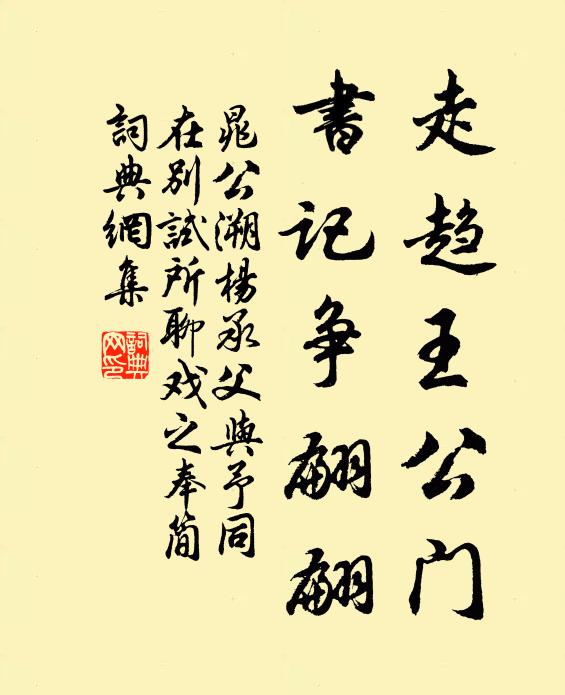 走趋王公门
書记争翩翩
晁公溯楊承父與予同
在别試所聊戏之奉简
詞典網集
詞典网印